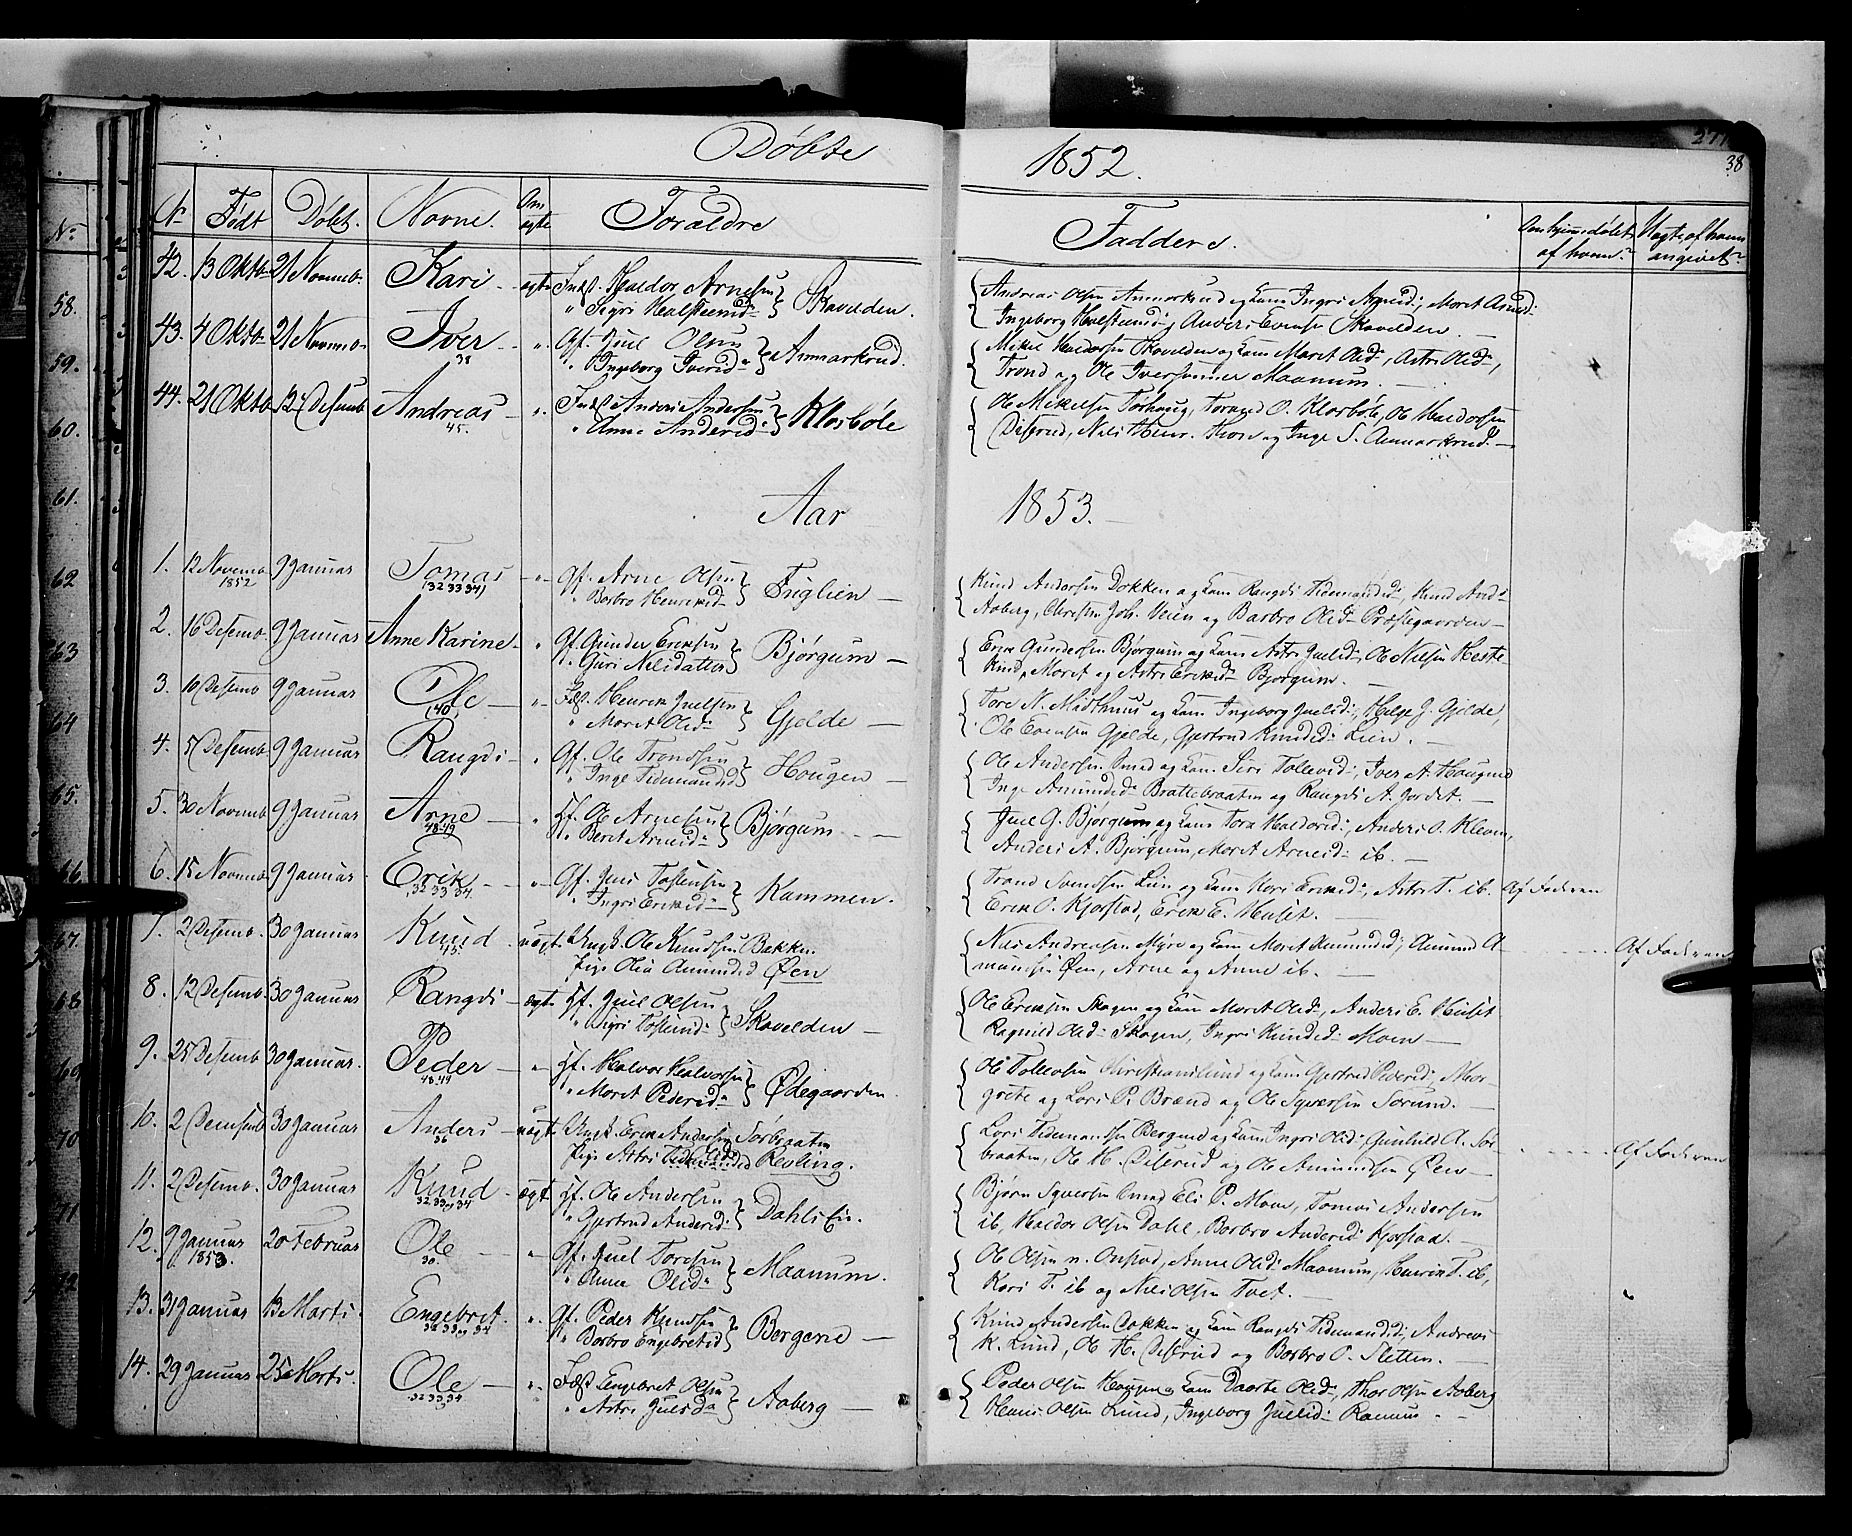 Døbte 1852.
38
No Født Døbt. Navne. Om ægte Forældre Faddere. Om hjemmedøbt af hvem? Uægte af hvem angivet?
42. 13 Oktb 21 Novemb. Kari ægte Haldor Arnesen Sigri Halsteensd Skavelden.
Andreas Olsen Anmarkrud og Kone Ingri Arnesd., Maret Arned.
Ingeborg Halsteensd., Anders Evensen Skavelden.
43. 4 Oktb 21 Novemb. Iver " Gf. Juel Olsen Ingeborg Iversd Anmarkrud.
38
Mikel Haldorsen Skavelden og Kone Maret Olsd., Astri Olsd.,
Trond og Ole Iversønner Maanum.
44. 21 Oktb 12 Desemb Andreas " Anders Andersen Anne Andersd. Klosbøle
45.
Ole Mikelsen Torhaug, O. Klosbøle, Ole Haldorsen
Diserud, Nils Henr. og Inge S. Anmarkrud.
Aar 1853.
1. 12 Novemb 1852 9 Januar Tomas " Gf. Arne Olsen Barbro Henriksd Fuglien
(32 33 34)
Knud Andersen Dokken og Kone Rangdi Tidemandsd., Knud And.
Aaberg, Christen Joh. Veien og Barbro Olsd. Præstegaarden
2. 16 Desemb. 9 Januar Anne Karine " Gf. Gunder Eriksen Guri Nilsdatter Bjørgum
Erik Gundersen Bjørgum og Kone Astri Juelsd., Ole Nilsen Heste
kind, Maret og Astri Eriksd. Bjørgum.
3. 10 Desemb 9 Januar Ole " Henrik Juelsen Maret Olsd. Gjelde
(40)
Tore N. Midthuus og Kone Ingeborg Juelsd., Helge J. Gjelde,
Ole Evensen Gjelde, Gjertrud Knudsd. Lien.
4. 5 Desemb 9 Januar Rangdi " Gf. Ole Trondsen Inge Tidemandsd Hougen
Ole Andersen Smed og Kone Siri Tollevsd., Iver A. Haugrud
Inge Amundsd. Brattebraaten og Rangdi A. Jordet.
5. 30 Novemb 9 Januar Arne " Hf. Ole Arnesen Beret Arnesd. Bjørgum
48.49
Juel G. Bjørgum og Kone Tora Haldorsd., Anders O. Kleven,
Anders A. Bjørgum, Maret Arnesd. ib.
6. 15 Novemb 9 Januar Erik " Gf. Jens Tostensen Ingri Eriksd Kammen.
32 33 34
Trond Svendsen Lien og Kone Kari Eriksd., Astri T. ib. Af Faderen
Erik O. Kjørstad, Erik E. Huset.
7. 2 Desemb. 30 Januar Knud uægt. Ungk. Ole Knudsen Bakken.
43
Pige Olia Amundsd Øen
Nils Andreassen Myre og Kone Maret Amundsd., Amund A Af Faderen
mundsen Øen, Arne og Anne ib.
8. 12 Desemb 30 Januar Rangdi ægt Hf. Juel Olsen Sigri Skavelden
Ole Eriksen Skogen og Kone Maret Olsd., Anders E. Huset
Ragnild Olsd. Skogen, Ingri Knudsd. Moen
9. 25 Desemb 30 Januar. Peder " Hf. Halvor Halvorsen Maret Pedersd. Ødegaarden.
48.49
Ole Tollevsen Christianslund og Kone Gjertrud Pedersd., Mar-
grete og Lars P. Brænd og Ole Syversen Sørum.
10. 2 Desemb 30 Januar Anders uægt Ungk. Erik Andersen Sørbraaten
36
Pige Astri Olsd. Revling.
Lars Tidemandsen Bergrud og Kone Ingri Olsd., Gunhild A. Sør- Af Faderen
braaten, Ole H. Diserud og Ole Amundsen Øen
11. 2 Desemb. 30 Januar Knud ægt. Hf. Ole Andersen Gjertrud Andersd. Dahlslie.
32 33 34
Bjørn Syversen Smed Eli P. Moen, Tomas Andersen
ib. Haldor Olsen Dahl, Barbro Andersd. Kjørstad.
12. 9 Januar 1853. 20 Februar Ole " Gf. Juel Toresen Anne Olsd. Maanum.
30.
Ole Olsen n. Onstad, Anne Olsd. Maanum, Henrik T. ib.,
Kari T. ib og Nils Olsen Tvet.
13. 31 Januar 13 Marts. Engebret. " Gf. Peder Knudsen Barbro Engebretsd Bergene
32 33 34
Knud Andersen Dokken og Kone Rangdi Tidemandsd., Andreas
K. Lund, Ole H. Diserud og Barbro O. Sletten.
14. 29 Januar 25 Marts. Ole " Engebret Olsen Astri Juelsd. Aaberg
32 33 34
Peder Olsen Haugen og Kone Daarte Olsd., Thor Olsen Aaberg
Hans Olsen Lund, Ingeborg Juelsd. Ramun.
No
58.
59.
60.
61.
62
63
64
65.
66
67.
68
69
70
71
72